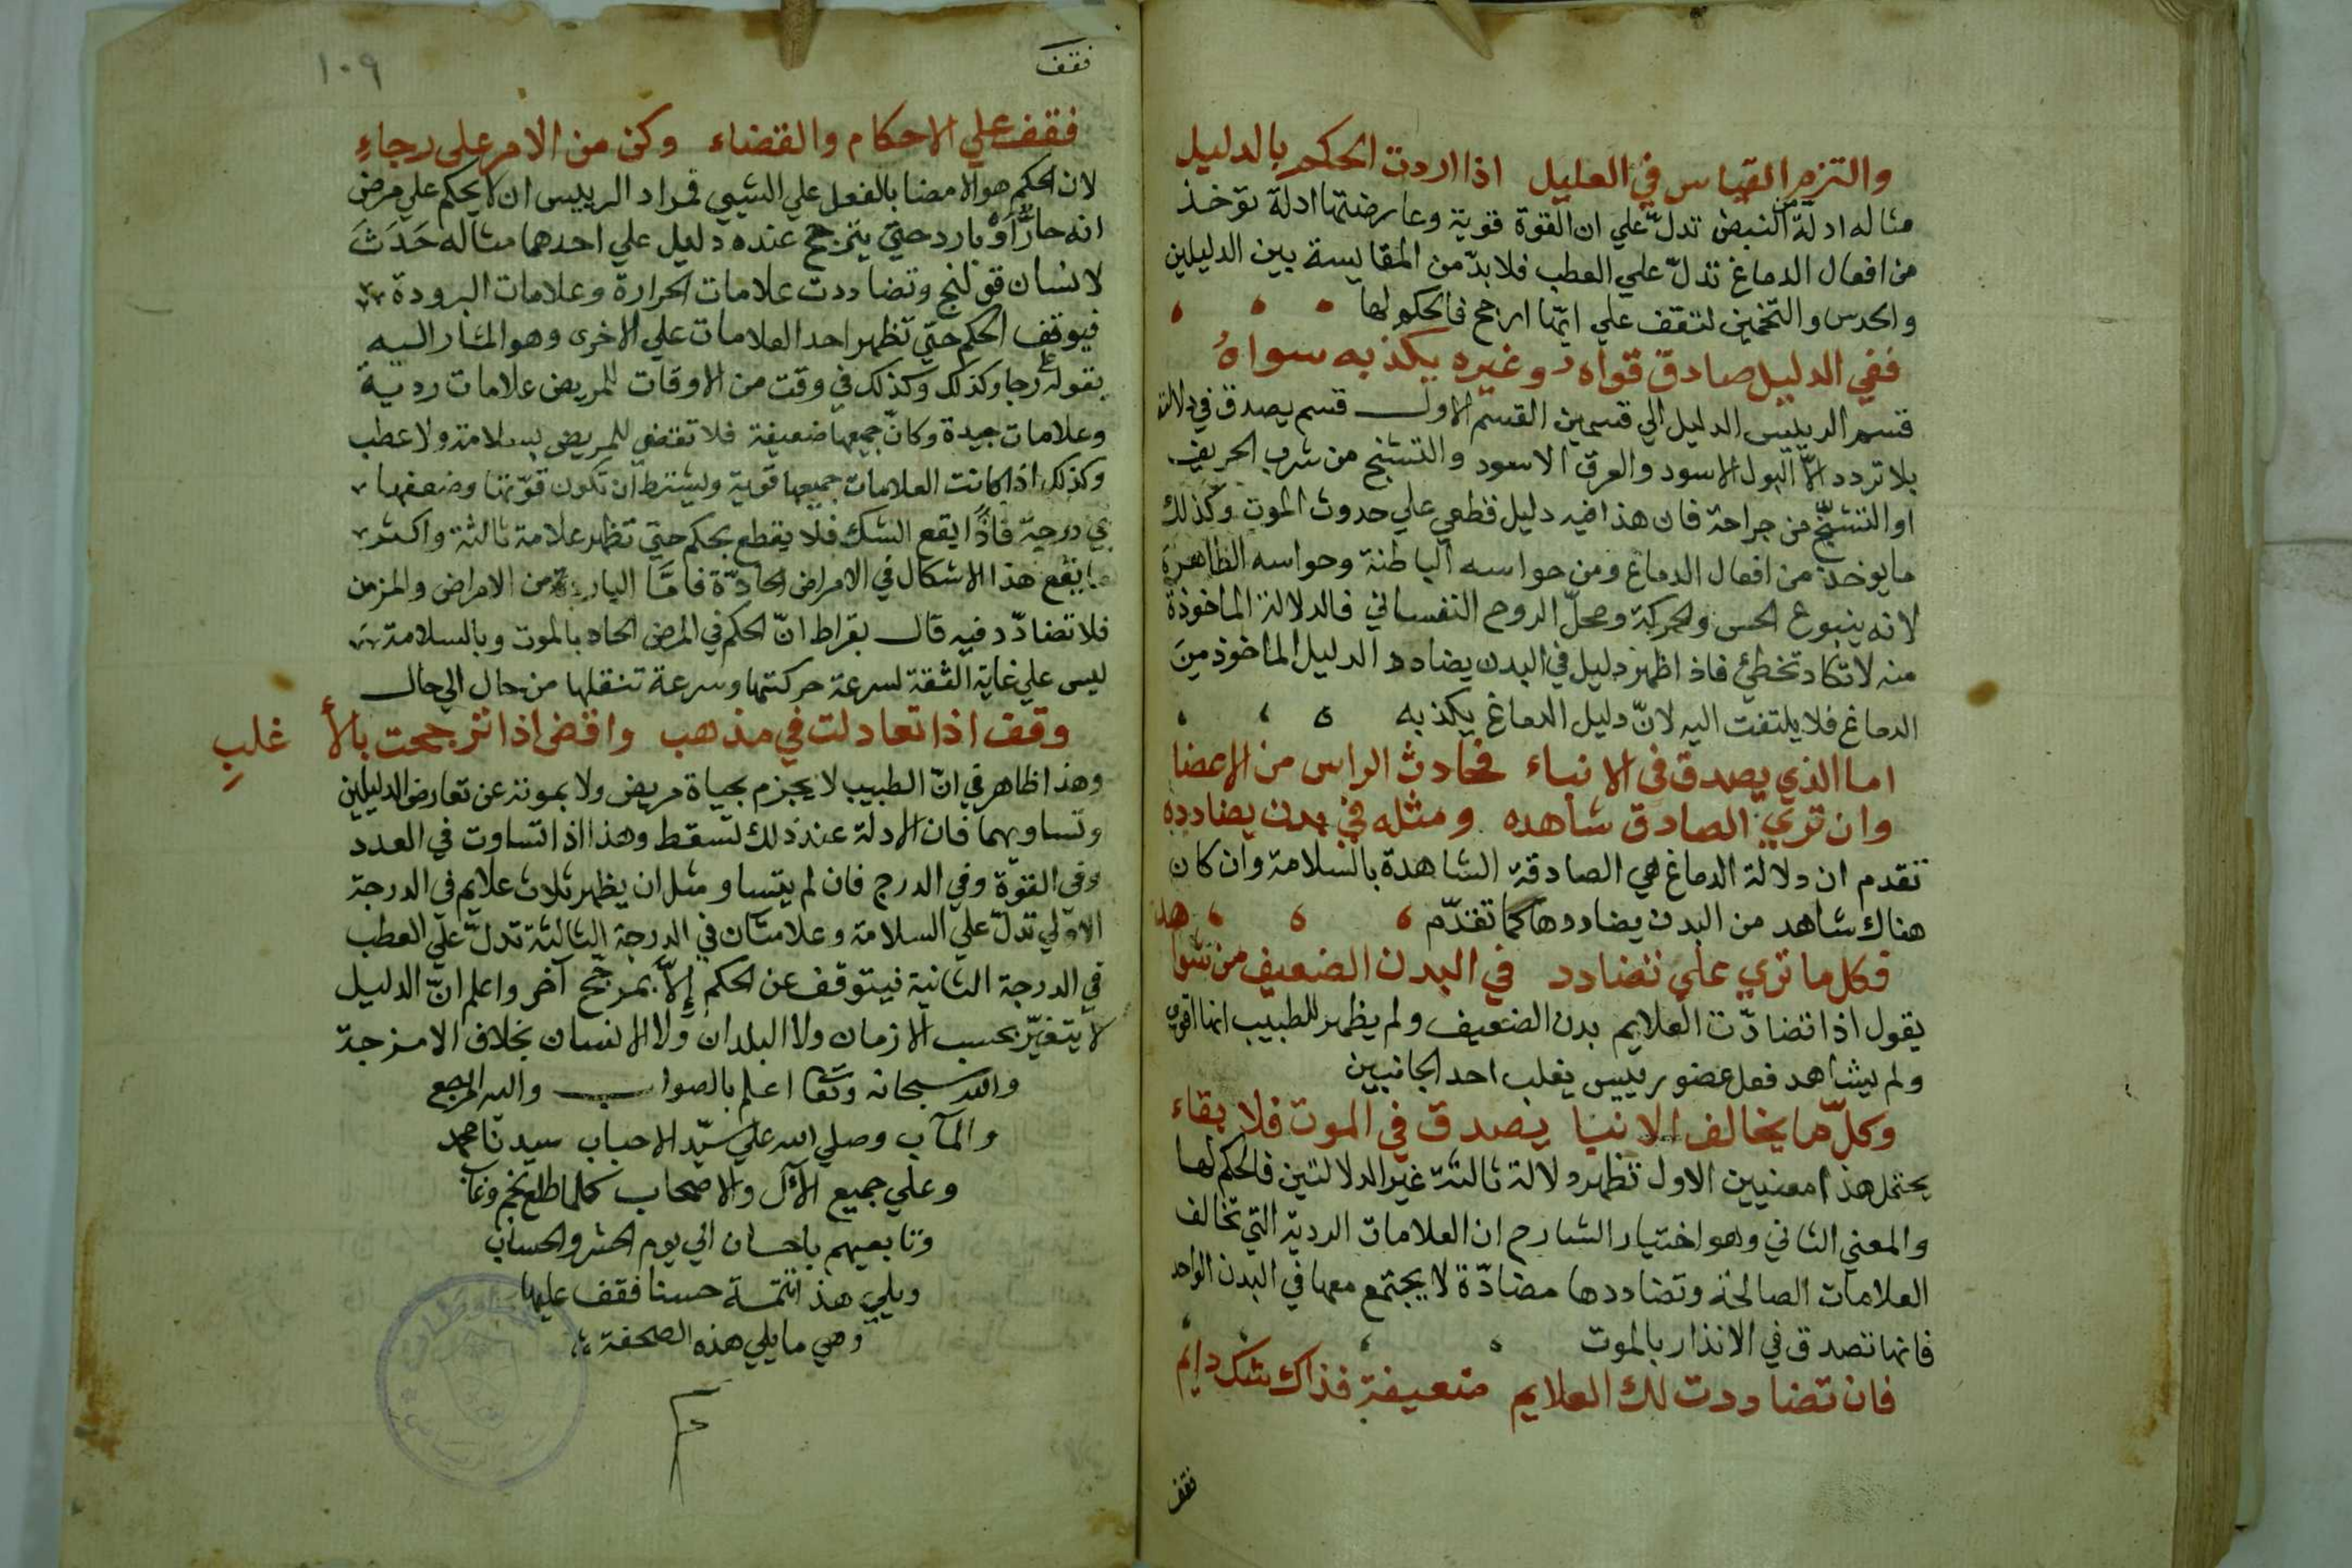 والتزم القياس في العليل اذا اردت الحكم بالدليل
مثاله ادلة النبض تدلّ علي ان القوة قوية وعارضتها ادلة توخذ
من افعال الدماغ تدلّ علي العطب فلابدّ من المقايسة بين الدليلين
والحدس والتخمين لتقف علي ايّها ارجح فالحكم لها
ففي الدليل صادق قواه وغيره يكذبه سواهُ
قسم الرييس الدليل الي قسمين القسم الاول قسم يصدق في دلالته
بلا تردد الاّ البول الاسود والعرق الاسود والتشنج من شرب الحريف
او التشنّج من جراحة فان هذا فيه دليل قطعي علي حدوث الموت وكذلك
ما يوخذ من افعال الدماغ ومن حواسه الباطنة وحواسه الظاهرة
لانه ينبوع الحس والحركة ومحلّ الروح النفساني فالدلالة الماخوذة
منه لا تكاد تخطئ فاذا ظهر دليل في البدن يضادد الدليل الماخوذ من
الدماغ فلا يلتفت اليه لانّ دليل الدماغ يكذبه
اما الذي يصدق في الانباء فحادث الراس من الاعضا
وان تري الصادق شاهده ومثله في بدن يضادده
تقدم ان دلالة الدماغ هي الصادقة الشاهدة بالسلامة وان كان
هناك شاهد من البدن يضاددها كما تقدّم
فكل ما تري علي تضادد في البدن الضعيف من شواهد
يقول اذا تضادّت العلايم بدن الضعيف ولم يظهر للطبيب ايها اقوي
ولم يشاهد فعل عضو رييس يغلب احد الجانبين
وكلّ ما يخالف الانبيا يصدق في الموت فلا بقاء
يحتمل هذا معنيين الاول تظهر دلالة ثالثة غير الدلالتين فالحكم لها
والمعني الثاني وهو اختيار الشارح ان العلامات الردية التي تخالف
العلامات الصالحة وتضاددها مضادّة لا يجتمع معها في البدن الواحد
فانها تصدق في الانذار بالموت
فان تضاددت لك العلايم ضعيفة فذاك شك دايم
فقف
١٠٩
فقف
فقف علي الاحكام والقضاء وكن من الامر علي رجاءِ
لان الحكم هو الامضا بالفعل علي الشيي فمراد الرييس ان لا يحكم علي مرض
انه حارٌّ اَوْ بارد حتي يترجح عنده دليل علي احدهما مثاله حَدَثَ
لانسان قولنج وتضاددت علامات الحرارة وعلامات البرودة
فيوقف الحكم حتّي تظهر احد العلامات علي الاخري وهو المشار اليه
بقوله علي رجا وكذلك وكذلك في وقت من الاوقات للمريض علامات ردية
وعلامات جيدة وكانّ جميعها ضعيفة فلا تقتضي للمريض بسلامة ولا عطب
وكذلك اذا كانت العلامات جميعها قوية ويشترط ان تكون قوّتها وضعفها
في درجة فاذًا يقع الشك فلا يقطع بحكم حتي تظهر علامة ثالثة واكثر
ما يقع هذا الاشكال في الامراض الحادّة فامّا الباردة من الامراض والمزمن
فلا تضادّد فيه قال بقراط انّ الحكم في المرض الحاد بالموت وبالسلامة
ليس علي غاية الثقة لسرعة حركتها وسرعة تنقلها من حال الي حال
وقف اذا تعادلت في مذهب واقض اذا ترجحت بالأغلبِ
وهذا ظاهر في انّ الطبيب لا يجزم بحياة مريض ولا بموته عن تعارض الدليلين
وتساويهما فان الادلة عند ذلك تسقط وهذا اذا تساوت في العدد
وفي القوّة وفي الدرج فان لم يتساو مثل ان يظهر ثلاث علايم في الدرجة
الاولي تدلّ علي السلامة وعلامتان في الدرجة الثالثة تدلّ علي العطب
في الدرجة الثانية فيتوقف عن الحكم إلاّ بمرجّح آخر واعلم انّ الدليل
لا يتغيّر بحسب الازمان ولا البلدان ولا الانسان بخلاف الامزجة
والله سبحانه وتعا اعلم بالصواب واليه المرجع
والمآب وصلي الله علي سيّد الاحباب سيدنا محمد
وعلي جميع الآل والاصحاب كلما طلع نجم وغاب
وتابعيهم باحسان الي يوم الحشر والحساب
ويلي هذ تتمة حسنا فقف عليها
وهي ما يلي هذه الصحفة